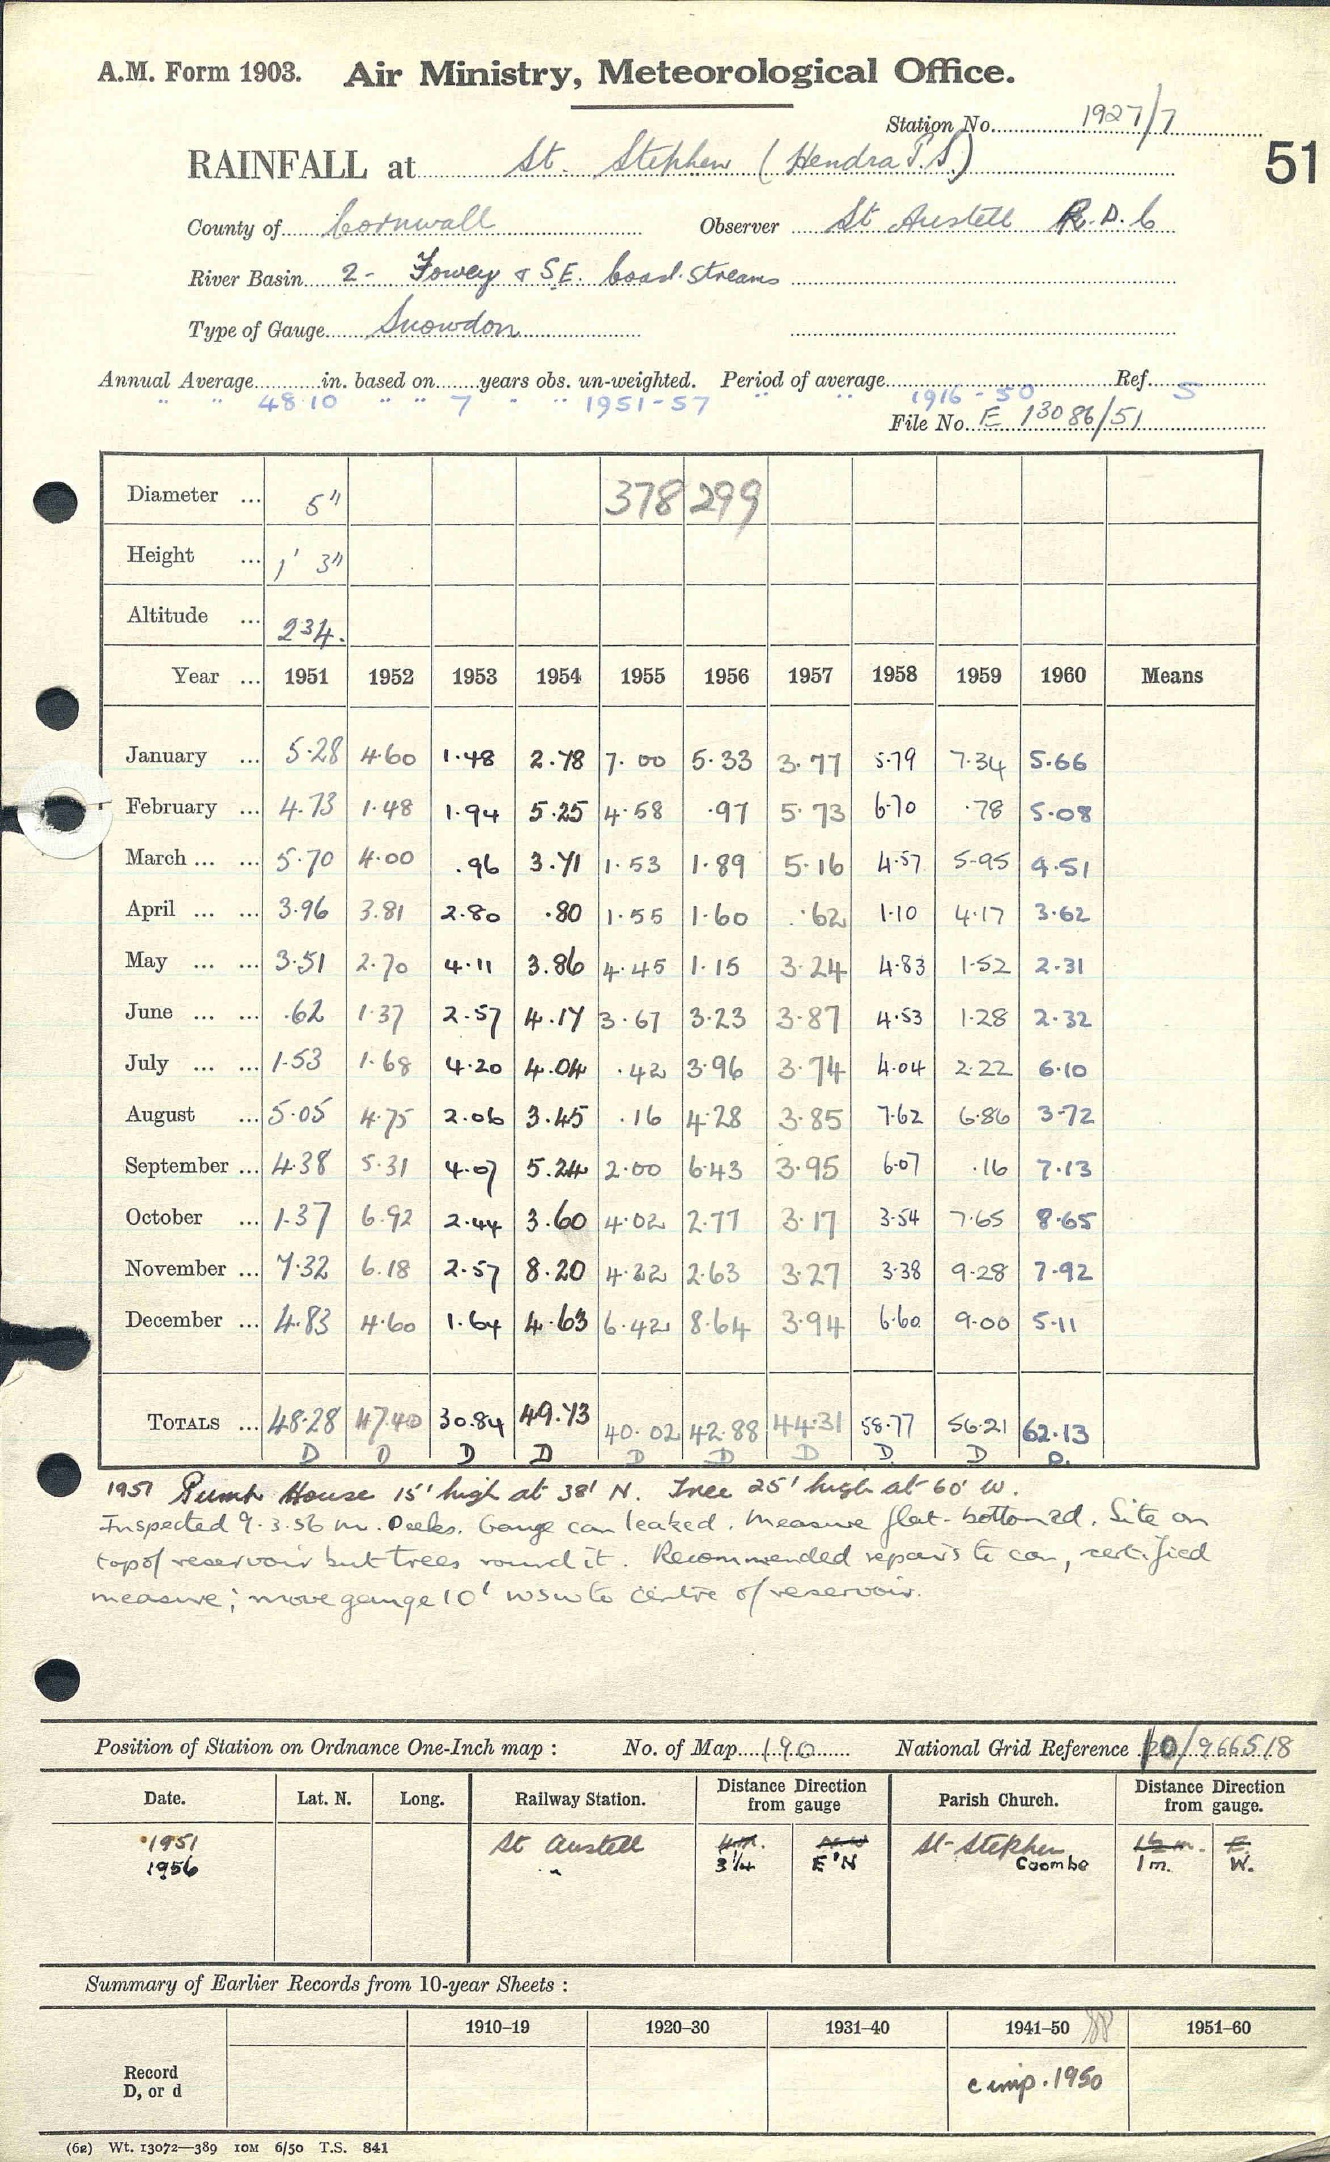 A.M. Form 1903. Air Ministry, Meteorological Office.
Station No. 1927/7
RAINFALL at St. Stephen (Hendra P.S.)
51
County of Cornwall Observer St Austell R.D.C
River Basin 2- Fowey & S.E. Coast. Streams
Type of Gauge Snowdon
Annual Average in. based on years obs. un-weighted. Period of average Ref.
" " 48.10 " " 7 " " 1951-57 " " 1916-50 S
File No. E 13086/51
Diameter ... 5" 378 299
Height ... 1' 3"
Altitude ... 234.
Year ... 1951 1952 1953 1954 1955 1956 1957 1958 1959 1960 Means
January ... 5.28 4.60 1.48 2.78 7.00 5.33 3.77 5.79 7.34 5.66
February ... 4.73 1.48 1.94 5.25 4.58 .97 5.73 6.70 .78 5.08
March ... ... 5.70 4.00 .96 3.71 1.53 1.89 5.16 4.57 5.95 4.51
April ... ... 3.96 3.81 2.80 .80 1.55 1.60 .62 1.10 4.17 3.62
May ... ... 3.51 2.70 4.11 3.86 4.45 1.15 3.24 4.83 1.52 2.31
June ... ... .62 1.37 2.57 4.17 3.67 3.23 3.87 4.53 1.28 2.32
July ... ... 1.53 1.68 4.20 4.04 .42 3.96 3.74 4.04 2.22 6.10
August ... 5.05 4.75 2.06 3.45 .16 4.28 3.85 7.62 6.86 3.72
September ... 4.38 5.31 4.07 5.24 2.00 6.43 3.95 6.07 .16 7.13
October ... 1.37 6.92 2.44 3.60 4.02 2.77 3.17 3.54 7.65 8.65
November ... 7.32 6.18 2.57 8.20 4.22 2.63 3.27 3.38 9.28 7.92
December ... 4.83 4.60 1.64 4.63 6.42 8.64 3.94 6.60 9.00 5.11
TOTALS ... 48.28 47.40 30.84 49.73 40.02 42.88 44.31 58.77 56.21 62.13
D D D D D D D D. D D.
1951 Pump House 15' high at 38' N. Tree 25' high at 60' W.
Inspected 9.3.56 m. Deeks. Gauge can leaked. Measure flat-bottomed. Site on
top of reservoir but trees round it. Recommended repairs to can, certified
measure; move gauge 10' WSW to centre of reservoir.
Position of Station on Ordnance One-Inch map : No. of Map 190 National Grid Reference 10/966518
Date. Lat. N. Long. Railway Station. Distance Direction from gauge Parish Church. Distance Direction from gauge.
1951 St Austell 4m. NNW St-Stephen 1½ m. E.
1956 " 3¼ E'N Coombe 1m. W.
Summary of Earlier Records from 10-year Sheets :
1910-19 1920-30 1931-40 1941-50 1951-60
Record
D, or d
c imp. 1950
(62) Wt. 13072—389 10M 6/50 T.S. 841